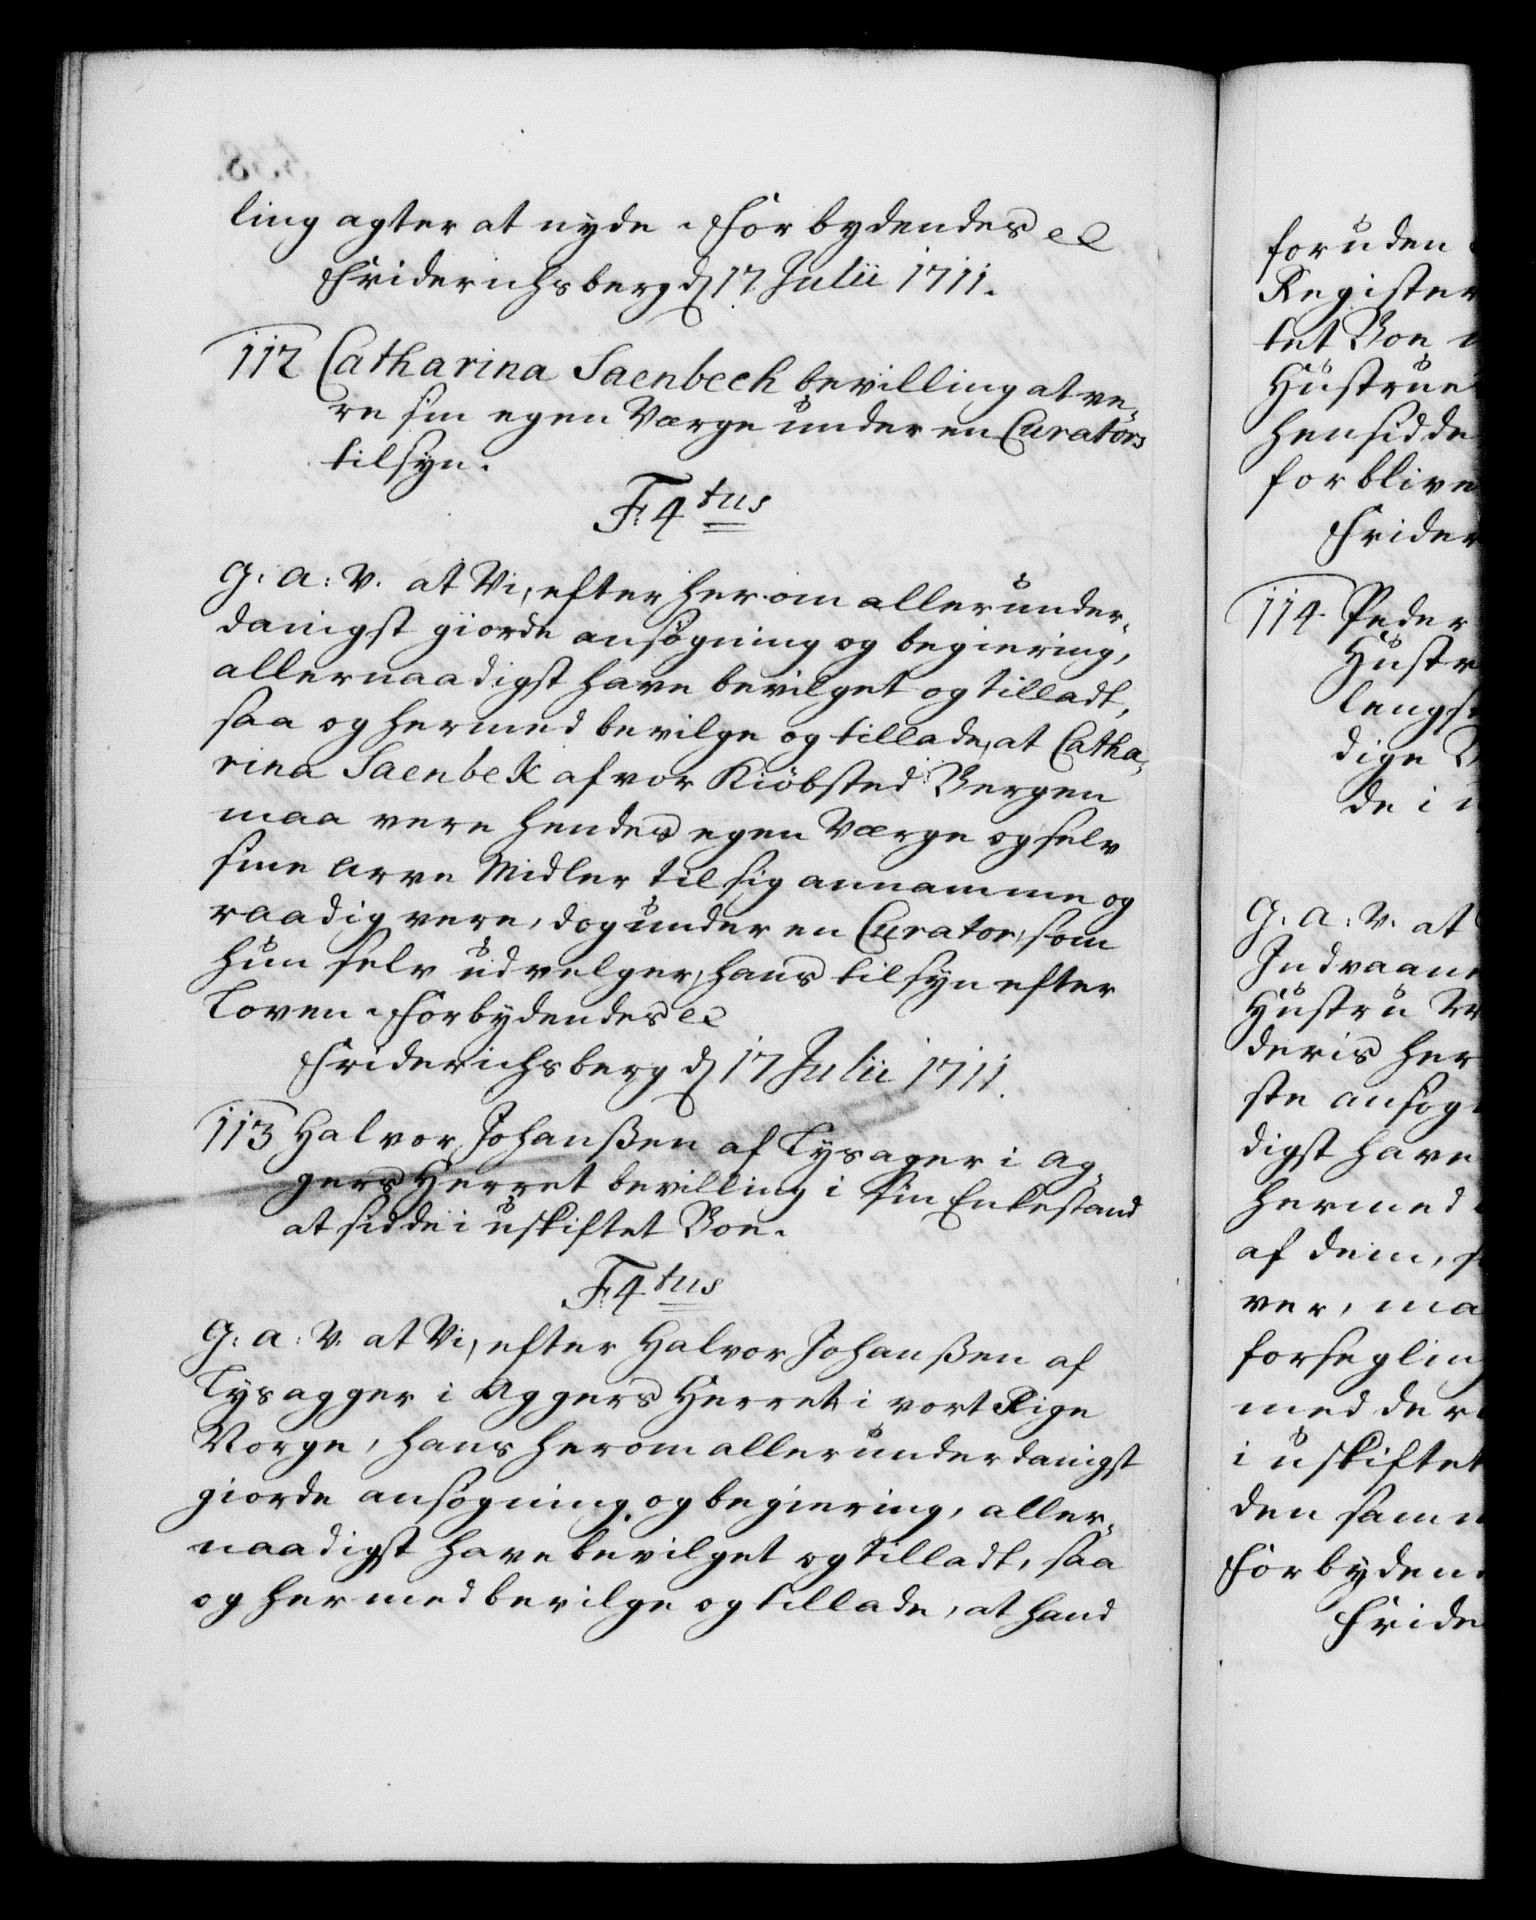 ling agter at nyde. Forbydendes ec
Friderichsberg d 17 Julii 1711.
112 Catharina Saenbech bevilling at ve-
re sin egen Værge under en Curators
tilsyn.
F: 4tus
G: A: V. at Vi, efter herom allerunder-
danigst giorde ansøgning og begiering,
allernaadigst have bevilget og tilladt,
saa og hermed bevilge og tillade, at Catha-
rina Saenbek af vor Kiöbsted Bergen
maa vere hendes egen Værge og selv
sine Arve Midler til sig annamme og
raadig vere, dog under en Curator, som
hun selv udvelger, hans tilsyn efter
Loven. Forbydendes ec
Friderichsberg d 17 Julii 1711.
113 Halvor Johanßen af Lysager i Ag-
gers Herret bevilling i sin Enkestand
at sidde i uskiftet Boe.
F: 4tus
G: A: V. at Vi, efter Halvor Johanßen af
Lysagger i Aggers Herret i vort Rige
Norge, hans herom allerunderdanigst
giorde ansøgning og begiering, aller-
naadigst have bevilget og tilladt, saa
og hermed bevilge og tillade, at hand
foruden
Register
tet Boe
Hustrue
hensidde
forblive
Frider
114. Peder
Hustr
lengst
dige
de i
G: A: V. at
Indvaane
Hustru
deris her
ste ansøg
digst have
hermed
af dem,
ver, ma
forsegling
med der
i uskiftet
den samm
Forbyden
Fride